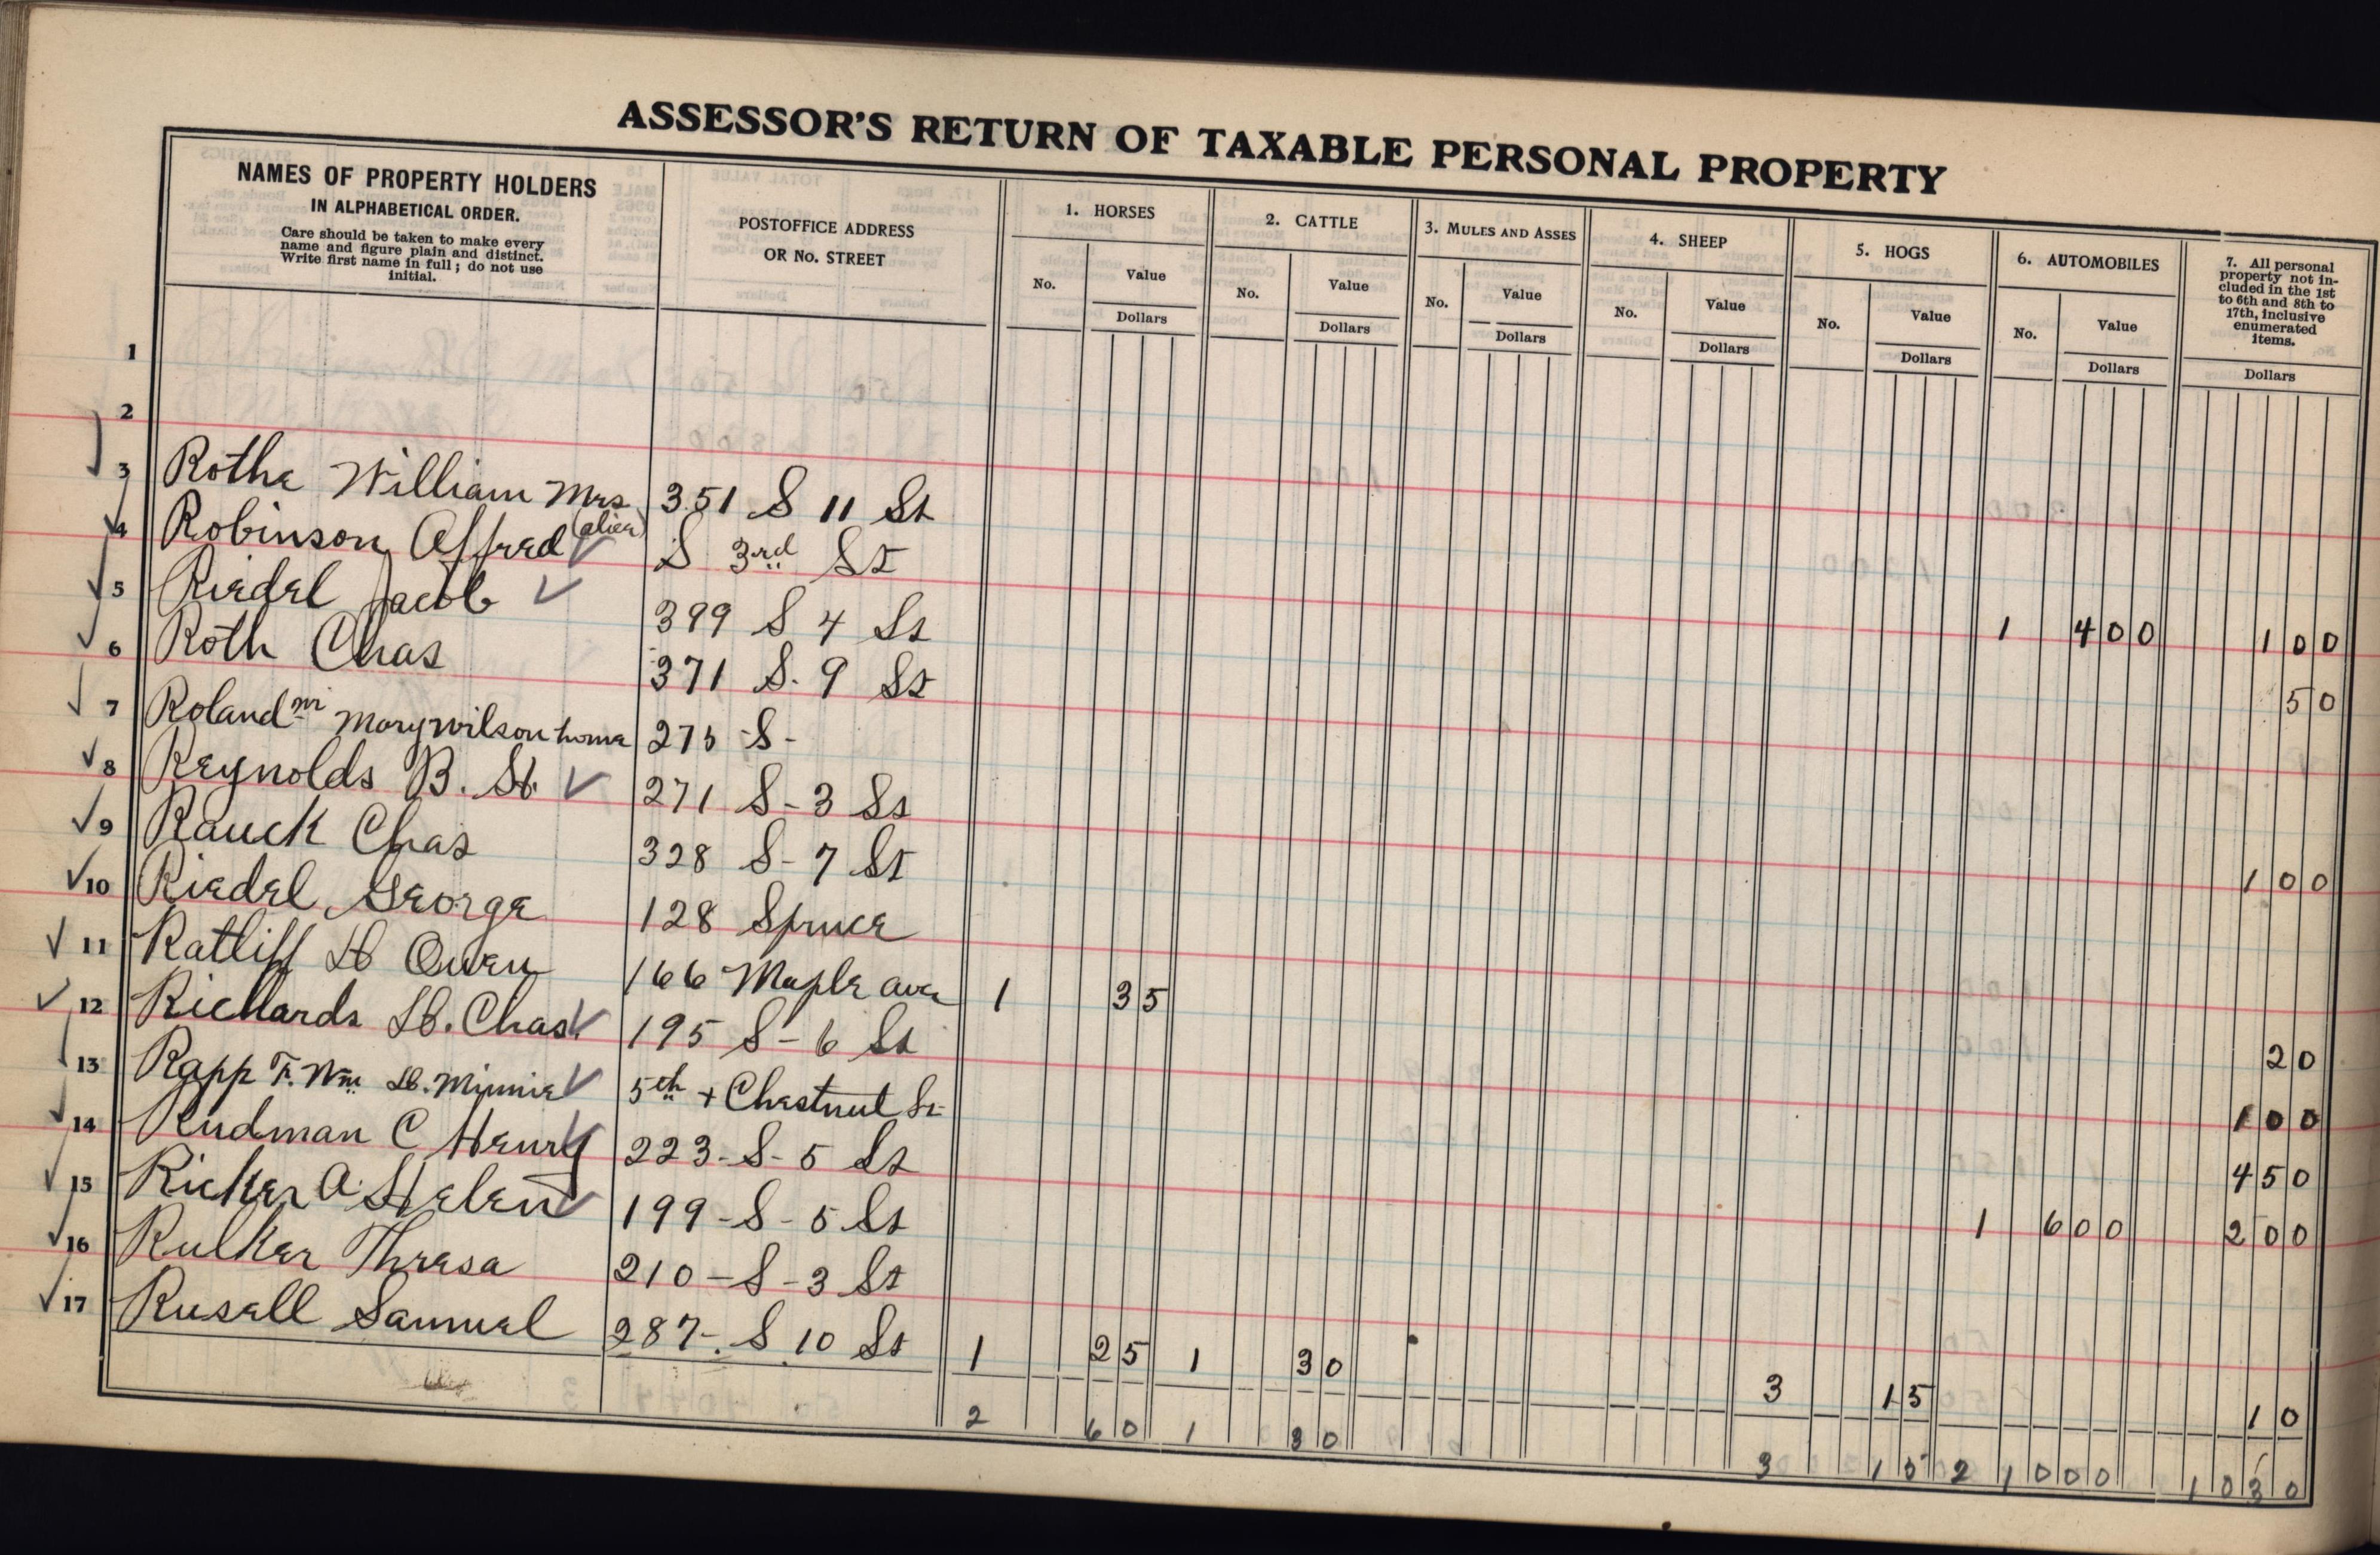 ASSESSOR'S RETURN OF TAXABLE PERSONAL PROPERTY
NAMES OF PROPERTY HOLDERS
IN ALPHABETICAL ORDER.
Care should be taken to make every
name and figure plain and distinct.
Write first name in full; do not use
initial.
POSTOFFICE ADDRESS
OR No. STREET
1. HORSES
No. Value
Dollars
2. CATTLE
No. Value
Dollars
3. MULES AND ASSES
No. Value
Dollars
4. SHEEP
No. Value
Dollars
5. HOGS
No. Value
Dollars
6. AUTOMOBILES
No. Value
Dollars
7. All personal
property not in-
cluded in the 1st
to 6th and 8th to
17th, inclusive
enumerated
items.
Dollars
1
2
3 Rothe William Mrs 351 S 11 St
4 Robinson Alfred (alien) S 3rd St 1 400 100
5 Riedel Jacob 399 S 4 St 50
6 Roth Chas 371 S. 9 St
7 Roland m Mary Wilson home 275 -S-
8 Reynolds B. H. 271 S-3 St 100
9 Rauck Chas 328 S-7 St
10 Riedel George 128 Spruce
11 Ratliff H Owen 166 Maple ave 1 35 20
12 Richards H. Chas. 195 S-6 St 100
13 Rapp F. Wm H. Minnie 5th + Chestnut St 450
14 Rudman C Henry 223-S-5 St 1 600 200
15 Ricker A. Helen 199-S-5 St
16 Rulker Thresa 210-S-3 St
17 Rusell Samuel 287-S 10 St 1 25 1 30 3 15 10
2 60 1 30 3 15 2 1000 1030